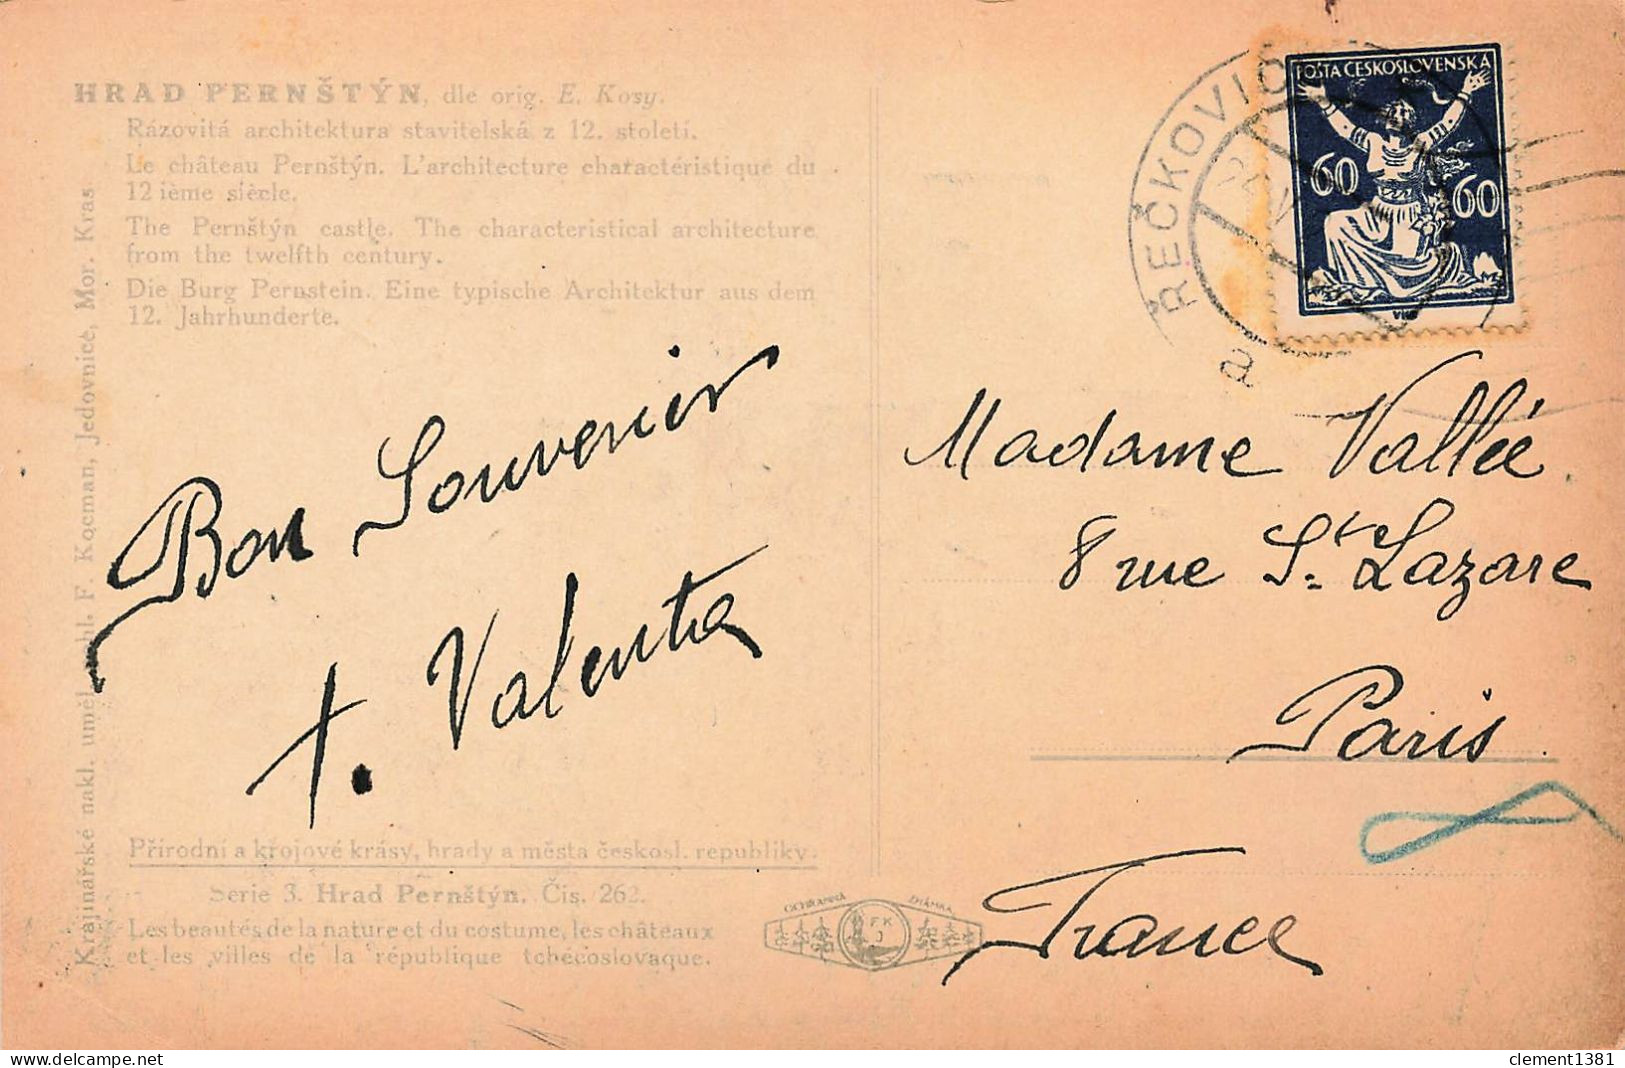 HRAD PERNŠTÝN, dle orig. E. Kosy.
Rázovitá architektura stavitelská z 12. století.
Le château Pernštýn. L'architecture charactéristique du
12 ième siècle.
The Pernštýn castle. The characteristical architecture
from the twelfth century.
Die Burg Pernstein. Eine typische Architektur aus dem
12. Jahrhunderte.
Krajinářské nakl. uměl. F. Kocman, Jedovnice, Mor. Kras
Bon Souvenir
Valenta
Přírodní a krojové krásy, hrady a města českosl. republiky.
Serie 3. Hrad Pernštýn. Čís. 262.
Les beautés de la nature et du costume, les châteaux
et les villes de la république tchécoslovaque.
OCHRANNÁ ZNÁMKA
F K
J
ŘEČKOVIC
a
POŠTA ČESKOSLOVENSKÁ
60 60
Madame Vallée
8 rue St Lazare
Paris
France
clement1381